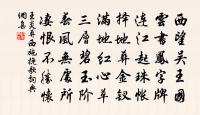 西望吳王國
雲書鳳字牌
連江起珠帳
擇地葬金釵
滿地紅心草
三層碧玉階
春風無處所
凄恨不勝懷
王炎葬西施挽歌詞典
網集